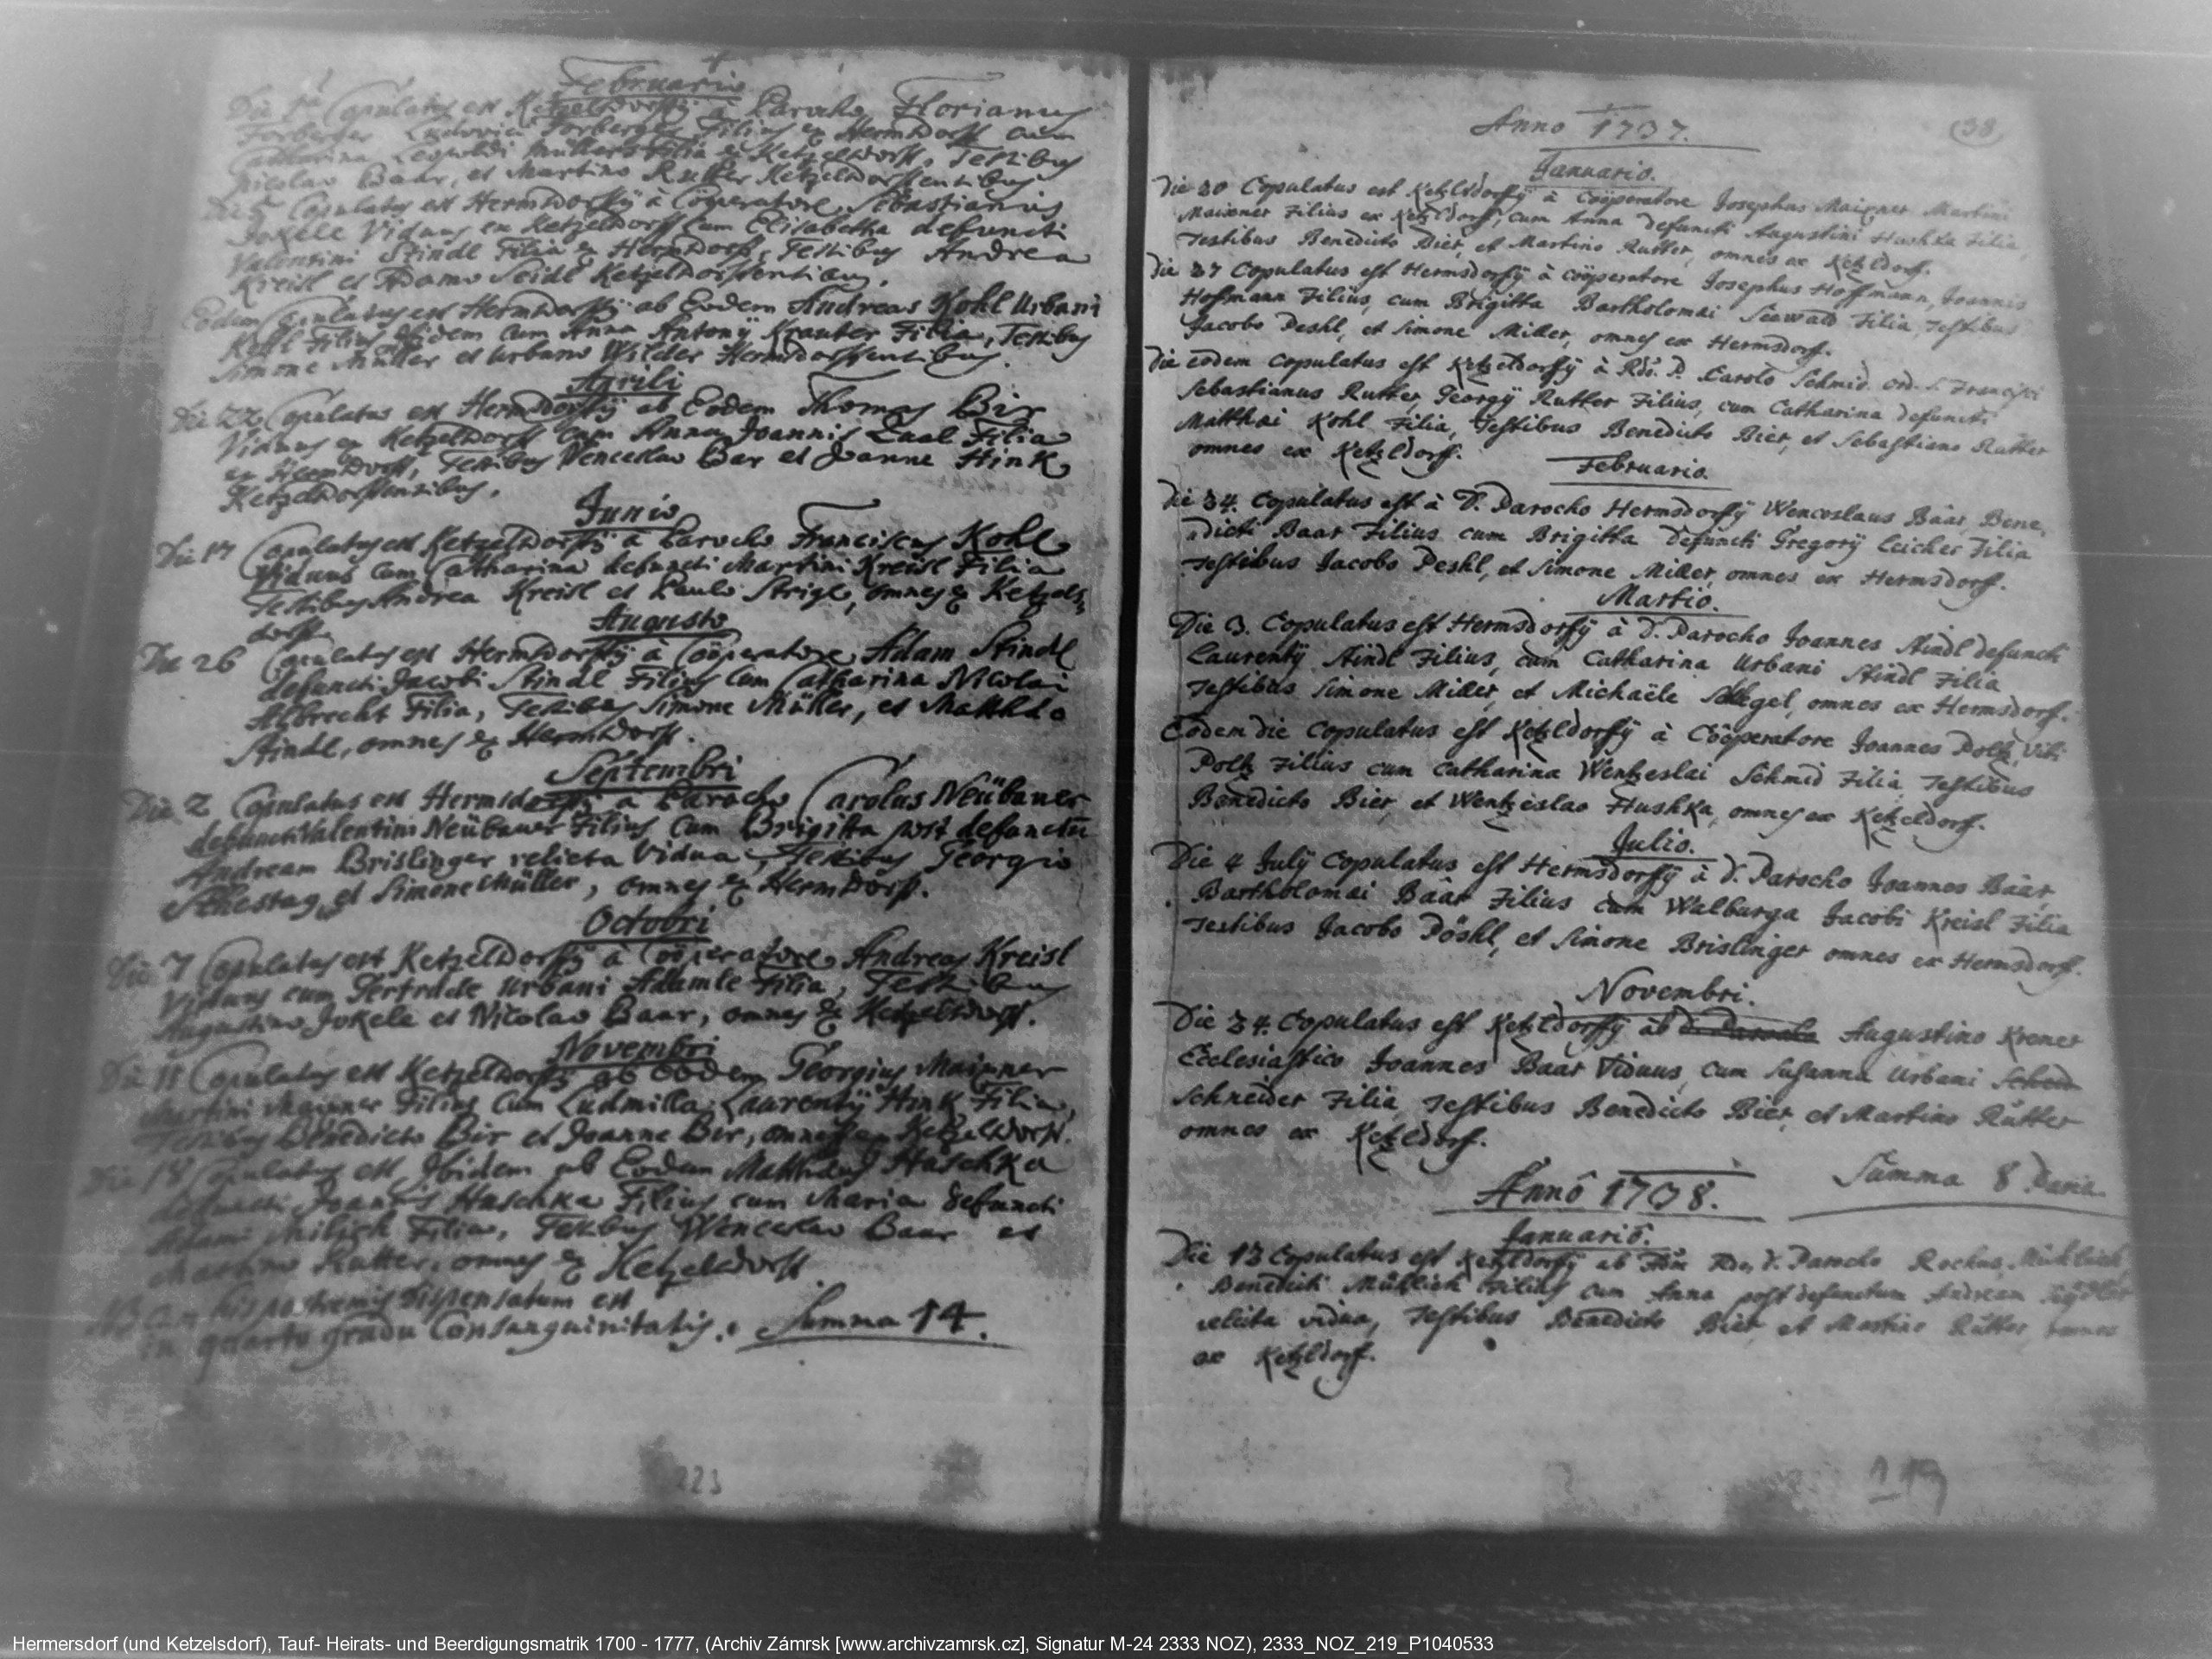 Februario
Die 1ª Copulatus est Ketzelsdorffÿ a Parocho Florianus
Forberger Ludovici Forberger Filius ex Hermsdorff cum
Catharina Leopoldi Müllers Filia ex Ketzelsdorff, Testibus
Nicolao Baar, et Martino Rutter Ketzelsdorffensibus
Die 5 Copulatus est Hermsdorffÿ à Cöoperatore Sebastianus
Jokele Viduus ex Ketzelsdorff cum Elisabetha defuncti
Valentini Stindl Filia ex Hermsdorff, Testibus Andrea
Kreisl et Adamo Seidl Ketzelsdorffensibus,
Eodem Copulatus est Hermsdorffÿ ab Eodem Andreas Kohl Urbani
Kohl Filius ibidem cum Anna Antonÿ Krauter Filia, Testibus
Simone Müller et Urbano Wilder Hermsdorffensibus.
Aprili
Die 22 Copulatus est Hermsdorffÿ ab Eodem Thomas Bir
Viduus ex Ketzelsdorff cum Anna Joannis Laal Filia
ex Hermsdorff, Testibus Venceslao Bar et Joanne Hink
Ketzelsdorffensibus.
Junio
Die 17 Copulatus est Ketzelsdorffÿ à Parocho Franciscus Kohl
Viduus cum Catharina defuncti Martini Kreisl Filia
Testibus Andrea Kreisl et Paulo Strigl, omnes ex Ketzels,
dorff.
Augusto
Die 26 Copulatus est Hermsdorffÿ à Cöoperatore Adam Stindl
defuncti Jacobi Stindl Filius Cum Catharina Nicolai
Albrecht Filia, Testibus Simone Müller, et Matthæo
Stindl, omnes ex Hermsdorff.
Septembri
Die 2 Copulatus est Hermsdorffÿ a Parocho Carolus Neübauer
defuncti Valentini Neübauer Filius Cum Brigitta post defunctū
Andream Brislinger relicta Vidua, Testibus Georgio
Schestag et Simone Müller, omnes ex Hermsdorff.
Octobri
Die 7 Copulatus est Ketzelsdorffÿ à Cöoperatore Andreas Kreisl
Viduus cum Gertrude Urbani Adamle Filia, Testibus
Augustino Jokele et Nicolao Baar, omnes ex Ketzelsdorff.
Novembri
Die 11 Copulatus est Ketzelsdorffÿ ab Eodem Georgius Maixner
Martini Maixner Filius Cum Ludmilla Laurentÿ Hink Filia,
Testibus Benedicto Bir et Joanne Bir, omnes ex Ketzelsdorff.
Die 18 Copulatus est Ibidem ab Eodem Matthæus Haschka
defuncti Joannis Haschka Filius cum Maria defuncti
Adami Milisch Filia, Testibus Wenceslao Baar et
Martino Rutter, omnes ex Ketzelsdorff
NB cum his postremis dispensatum est
in quarto gradu Consanguinitatis. Summa 14.
223
Anno 1737. 38
Januario.
Die 20 Copulatus est Ketzldorffÿ à Coöperatore Josephus Maixner Martini
Maixner Filius ex Ketzldorff, cum Anna defuncti Augustini Hushka Filia,
Testibus Benedicto Bier, et Martino Rutter, omnes ex Ketzldorf.
Die 27 Copulatus est Hermsdorffÿ à coöperatore Josephus Hoffmann, Joannis
Hofmann Filius, cum Brigitta Bartholomæi Seewald Filia, Testibus
Jacobo Peshl, et Simone Miller, omnes ex Hermsdorf.
Die eodem copulatus est Ketzeldorffÿ à Rdo. P. Carolo Schmid. ord. S. Francisci
Sebastianus Rutter, Georgÿ Rutter Filius, cum Catharina defuncti
Matthæi Kohl Filia, Testibus Benedicto Bier, et Sebastiano Rutter
omnes ex Ketzldorf.
Februario.
Die 24. Copulatus est à D. Parocho Hermsdorffÿ Wenceslaus Bäar, Bene,
dicti Baar Filius cum Brigitta defuncti Gregorÿ Leicher Filia
Testibus Jacobo Peshl, et Simone Miller, omnes ex Hermsdorf.
Martio.
Die 3. Copulatus est Hermsdorffÿ à D. Parocho Joannes Stindl defuncti
Laurentÿ Stindl Filius, cum Catharina Urbani Stindl Filia
Testibus Simone Miller, et Michaële Schlegel, omnes ex Hermsdorf.
Eodem die Copulatus est Ketzldorffÿ à Cöoperatore Joannes Poltz, Viti
Poltz Filius cum Catharina Wentzeslai Schmid Filia, Testibus
Benedicto Bier, et Wentzeslao Hushka, omnes ex Ketzeldorf.
Julio.
Die 4 Julÿ Copulatus est Hermsdorffÿ à D. Parocho Joannes Bäar,
Bartholomæi Bäar Filius cum Walburga Jacobi Kreisl Filia
Testibus Jacobo Pöshl, et Simone Brislinger omnes ex Hermsdorf.
Novembri.
Die 24. Copulatus est Ketzldorffÿ ab D. Parocho Augustino Krener
Ecclesiastico Joannes Baar Viduus, cum Susanna Urbani
Schneider Filia, Testibus Benedicto Bier, et Martino Rutter
omnes ex Ketzldorf.
Summa 8 Paria.
Annô 1738.
Januariô.
Die 13 Copulatus est Ketzldorffÿ ab Rdo. D. Parocho Rochus Mücklich
Benedicti Mücklich Filius cum Anna post defunctum Andream
relicta vidua, Testibus Benedicto Bier, et Martino Rutter, omnes
ex Ketzldorf.
119
Hermersdorf (und Ketzelsdorf), Tauf- Heirats- und Beerdigungsmatrik 1700 - 1777, (Archiv Zámrsk [www.archivzamrsk.cz], Signatur M-24 2333 NOZ), 2333_NOZ_219_P1040533